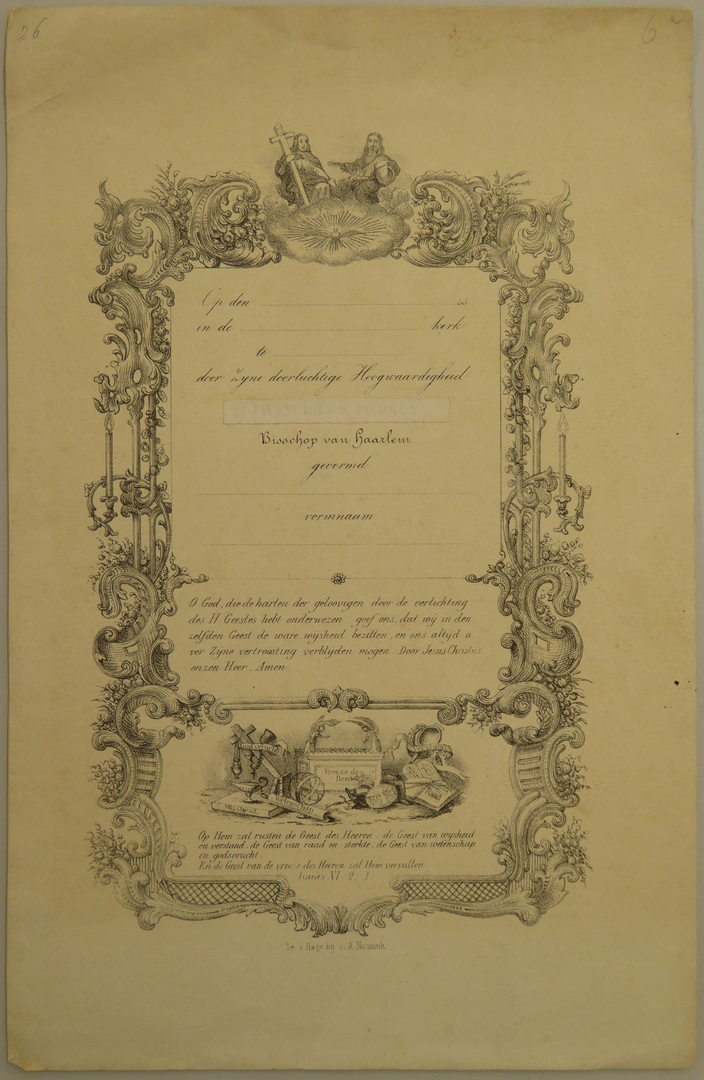 26
6
Op den
in de kerk
te
door Zyne doorluchtige Hoogwaardigheid
Bisschop van Haarlem.
gevormd
vormnaam
O God, die de harten der geloovigen door de verlichting
des H Geestes hebt onderwezen geef ons, dat wy in den
zelfden Geest de ware wysheid bezitten, en ons altyd o-
ver Zyne vertroosting verblyden mogen. Door Jesus Christus
onzen Heer. Amen.
Vreeze des
Heeren
Wysheid
Wetenschap
Op Hem zal rusten de Geest des Heeren, de Geest van wysheid
en verstand, de Geest van raad en sterkte, de Geest van wetenschap
en godsvrucht.
En de Geest van de vreeze des Heeren zal Hem vervullen.
Isaias XI. 2.
Te 's Hage by A. Nunnink